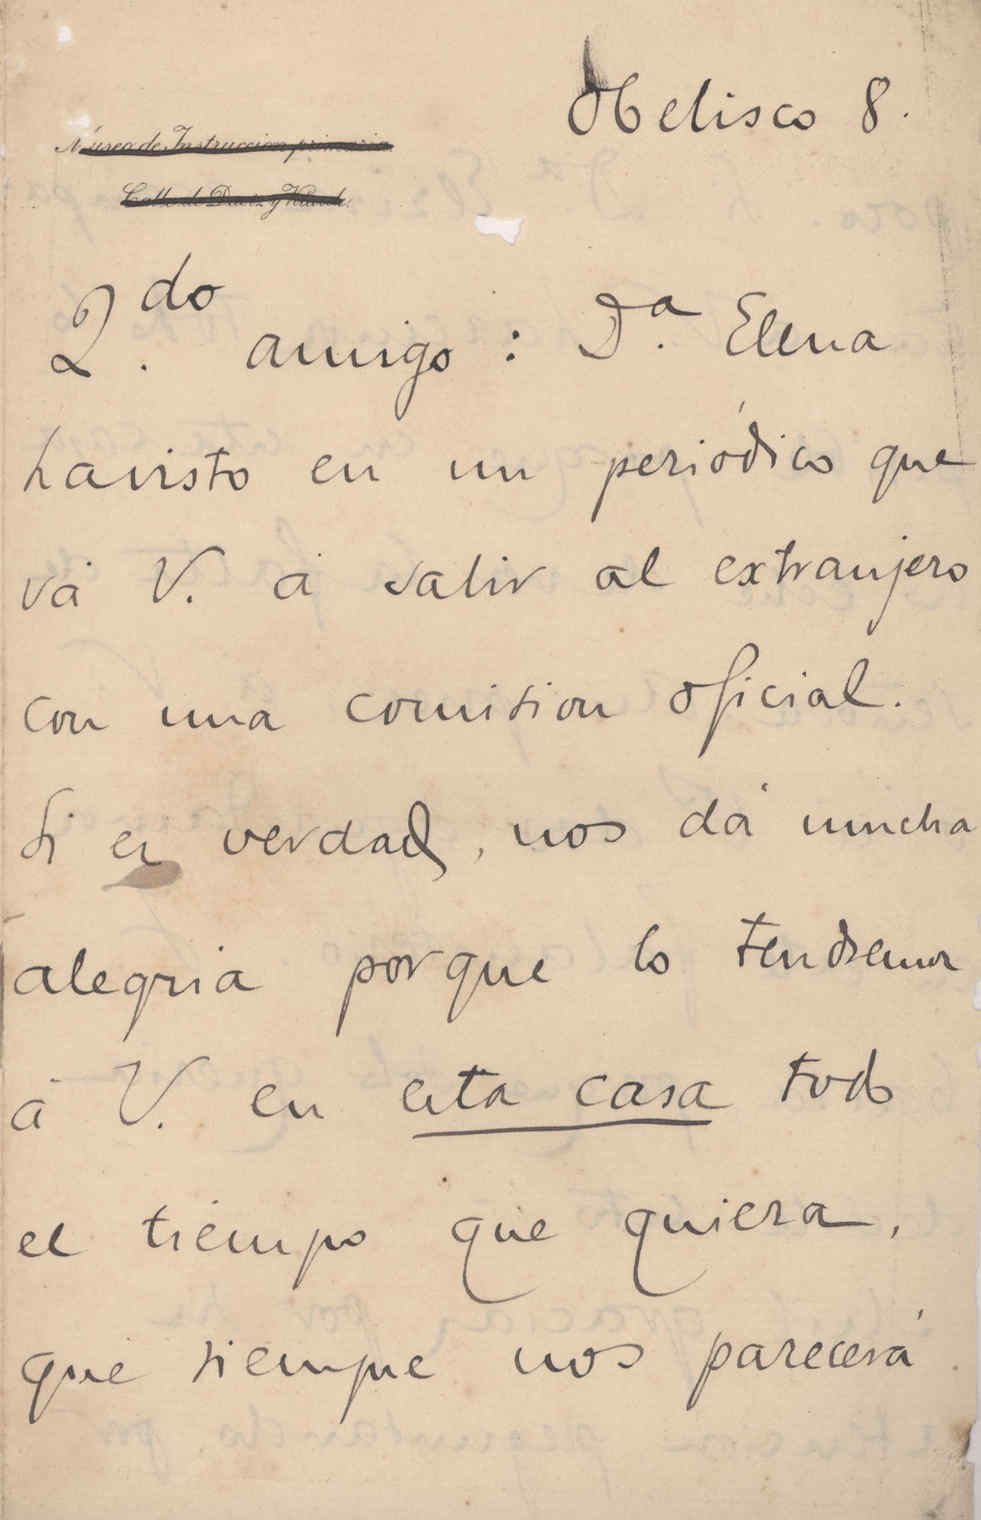 Obelisco 8.
Museo de Instruccion primaria
Calle de Daoiz y Velarde
Q.do amigo: D.a Elena
ha visto en un periódico que
vá V. á salir al extranjero
con una comision oficial.
Si es verdad, nos dá mucha
alegria porque lo tendremos
á V. en esta casa todo
el tiempo que quiera,
que siempre nos parecerá